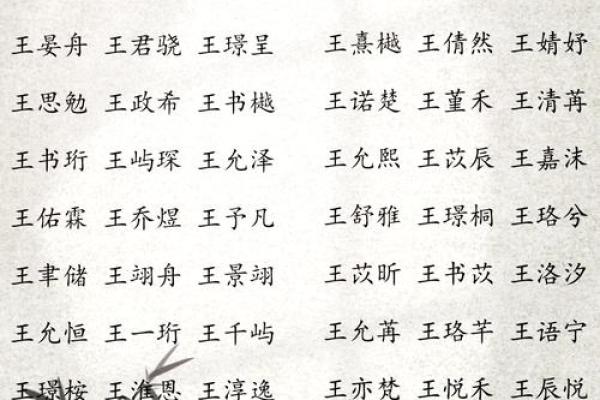 王晏舟 王君骁 王璟呈 王熹樾 王倩然 王婧妤
王思勉 王政希 王书樾 王诺楚 王堇禾 王清苒
王书珩 王屿琛 王允泽 王允熙 王苡辰 王嘉沫
王佑霖 王乔煜 王予凡 王舒雅 王璟桐 王珞兮
王聿储 王翊舟 王景翊 王苡昕 王书苡 王洛汐
王允恒 王一珩 王千屿 王允苒 王珞芊 王语宁
王璟桉 王淮恩 王淳逸 王亦梵 王悦禾 王辰悦